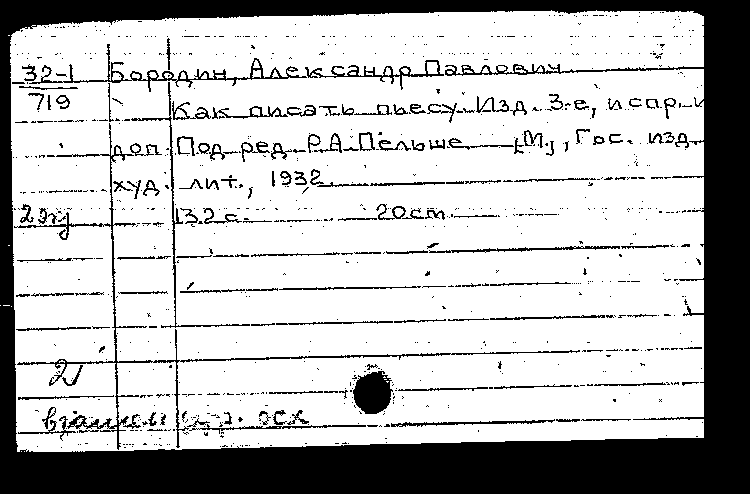 32-1 Бородин, Александр Павлович
719 Как писать пьесу. Изд. 3-е, испр. и
доп. Под ред. Р.А. Пельше. [М.], Гос. изд.
худ. лит., 1932.
2 экз 132 с. 20 см.
2
осх